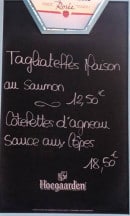 Rosée
Tagliatelles Maison
au Saumon
12,50€
Côtelettes d'agneau
sauce aux Cèpes
18,50€
Hoegaarden